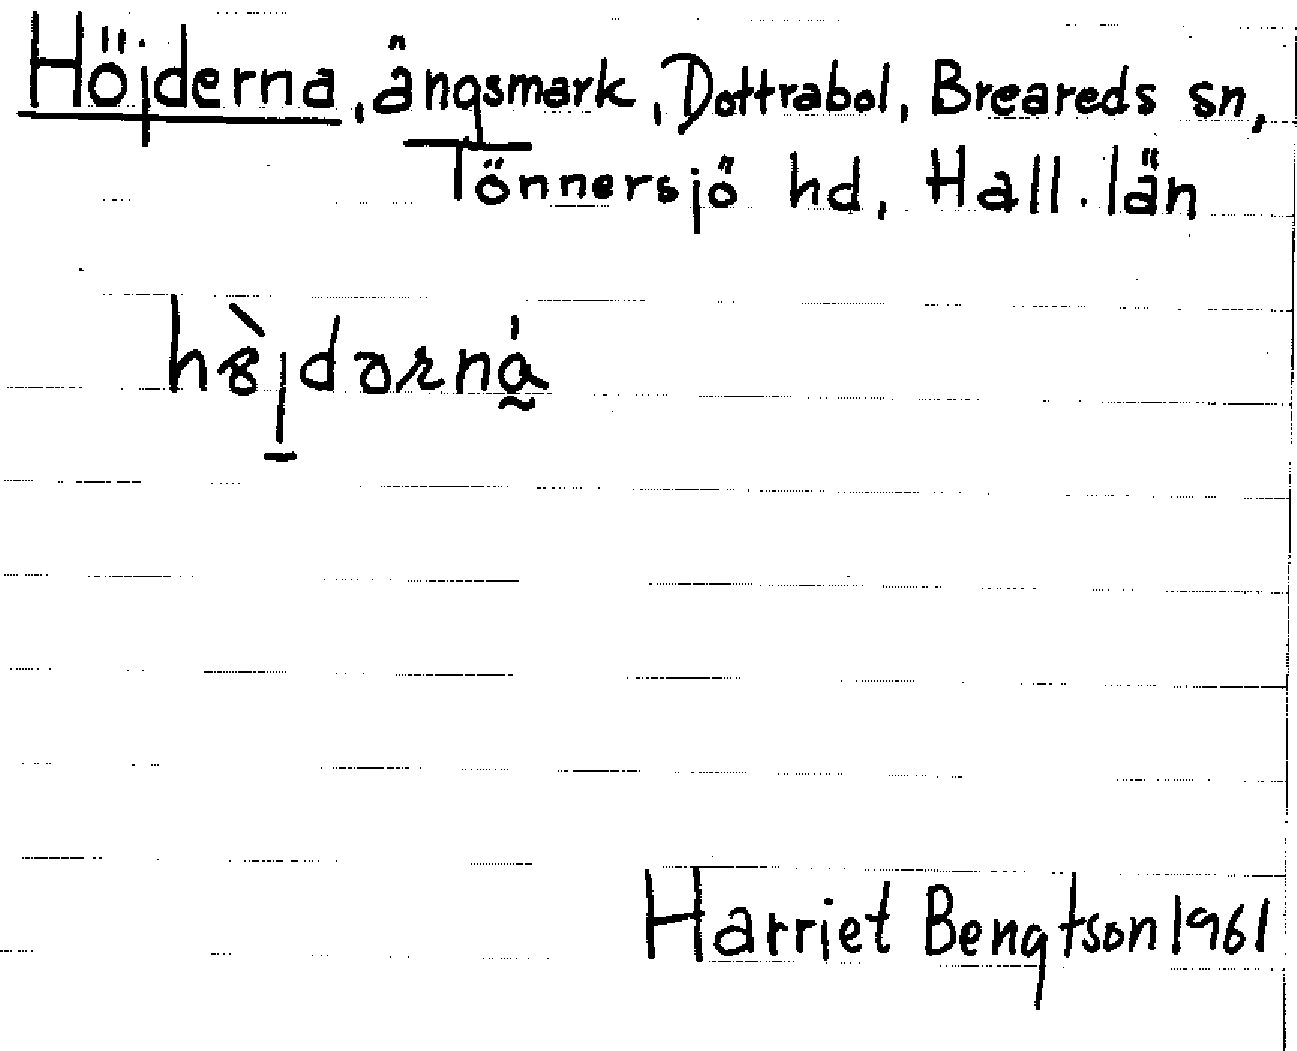 Höjderna, ängsmark, Dottrabol, Breareds sn,
Tönnersjö hd, Hall. län
hö̀jdərná̰
Harriet Bengtson 1961